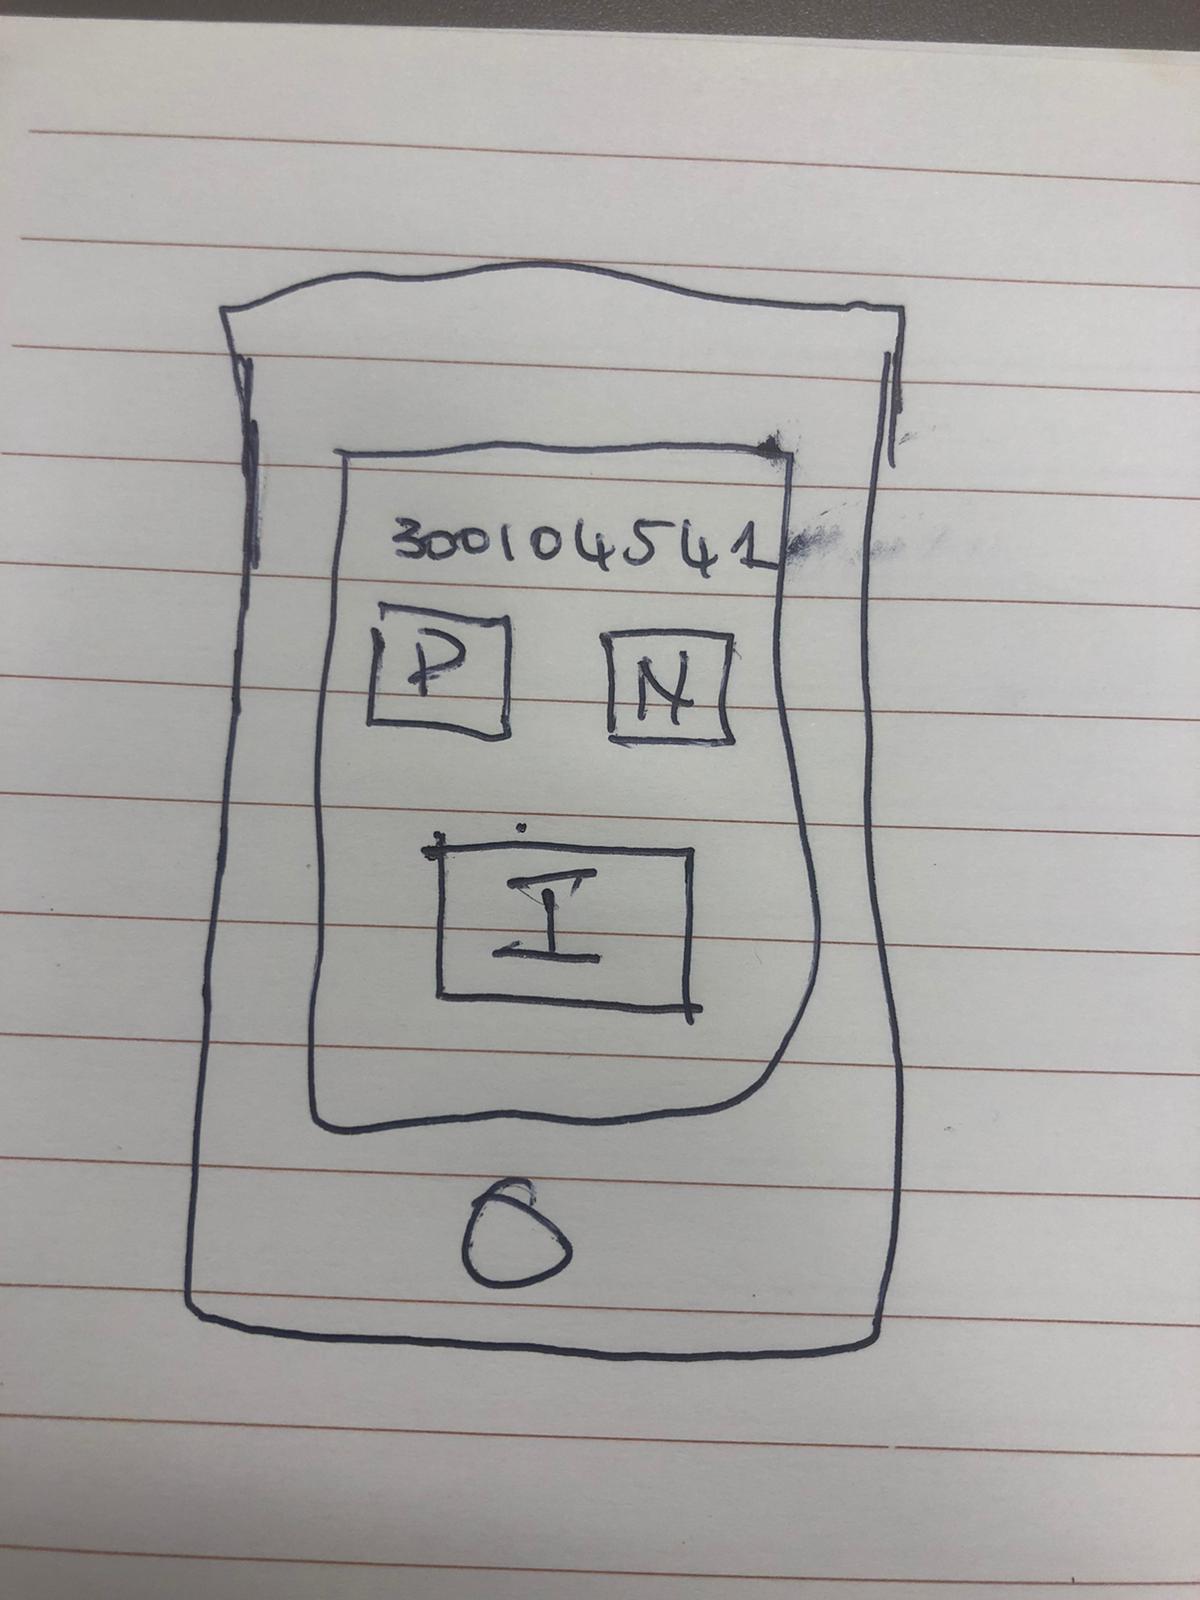 300104541
P N
I